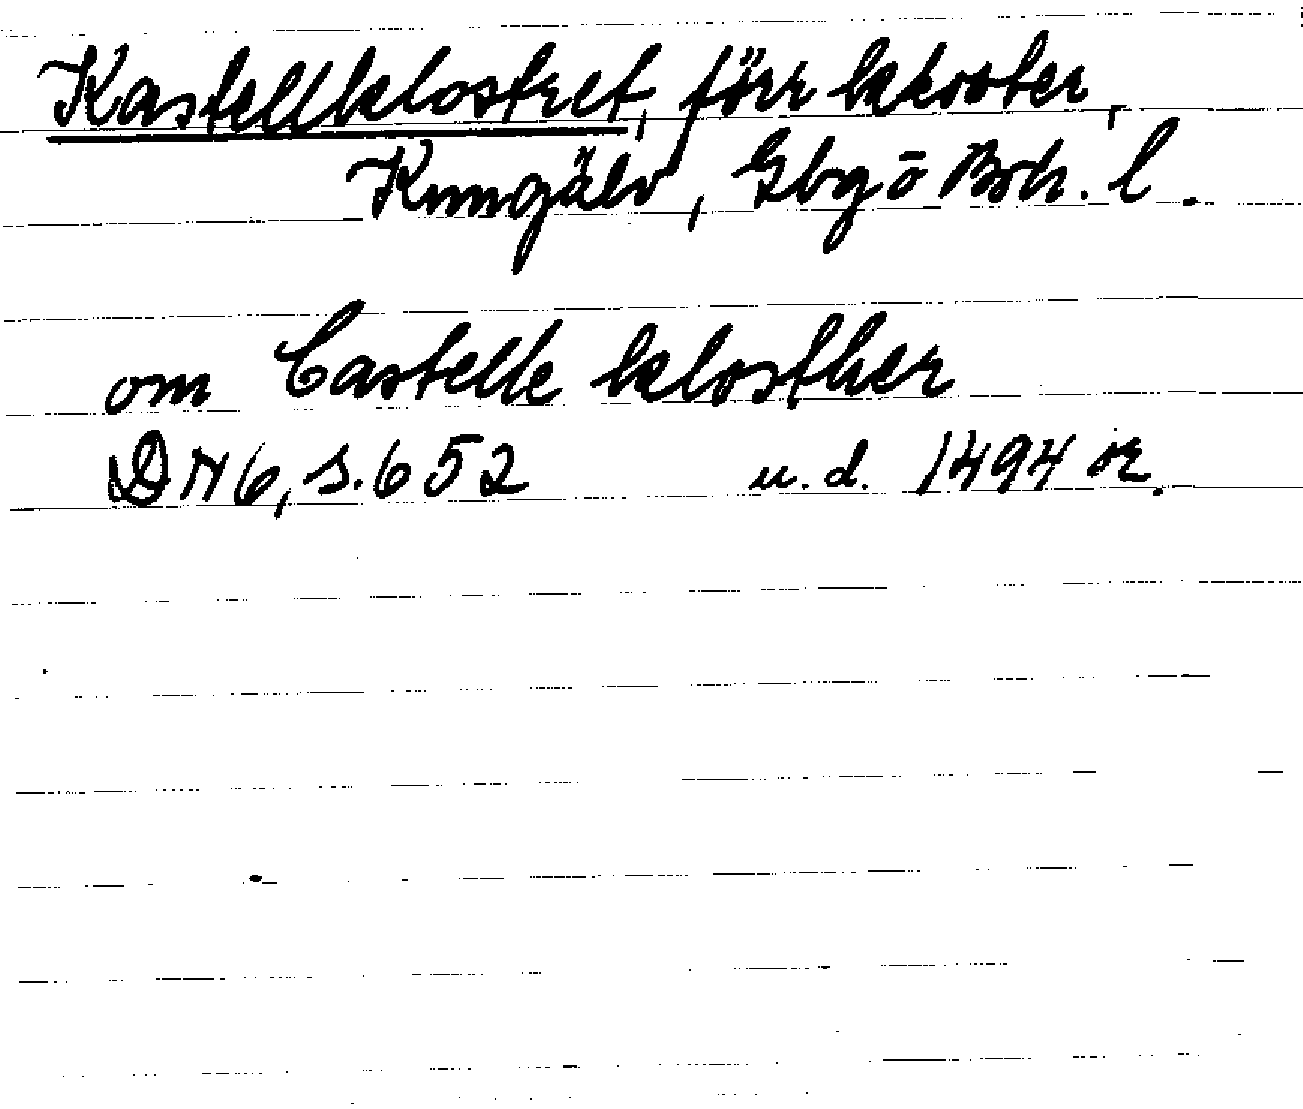 Kastellklostret, förr kloster,
Kungälv, Gbg o Boh. l.
om Castelle klosther
DN 6, s. 652 u. d. 1494 or.